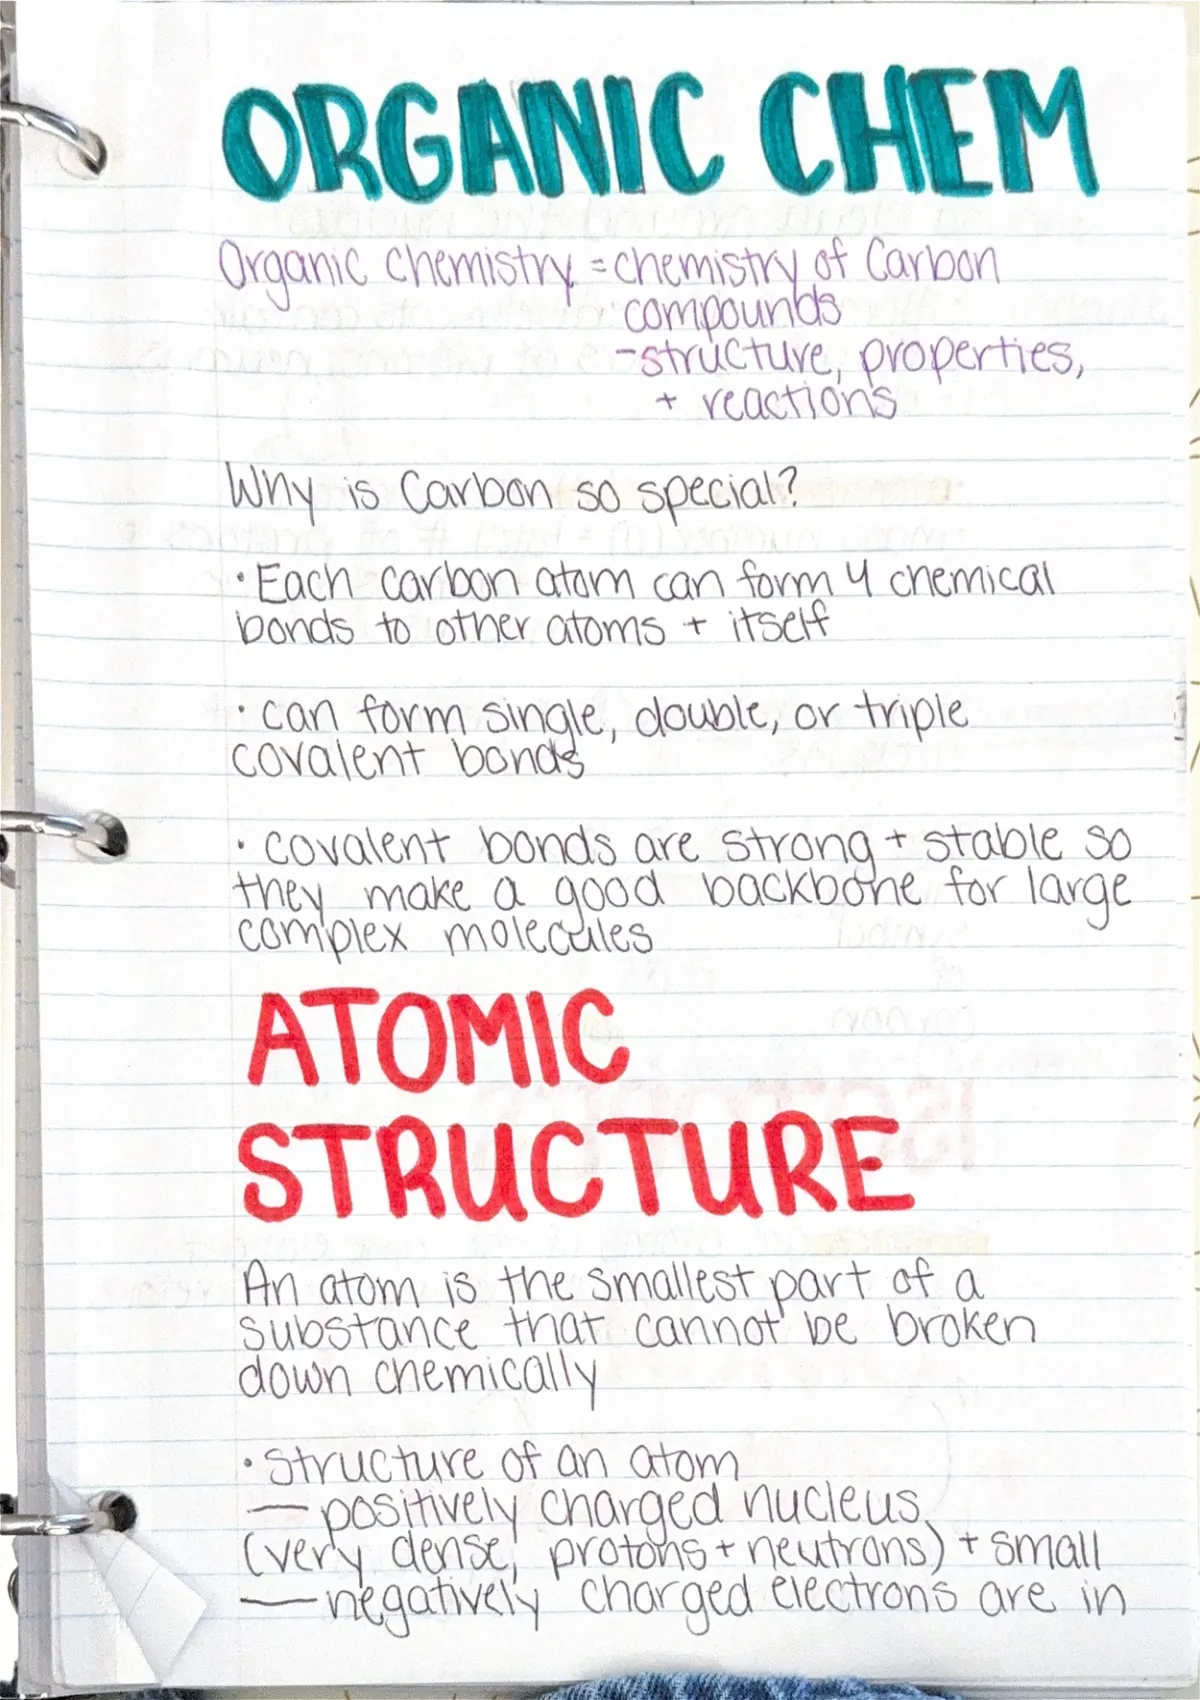 ORGANIC CHEM
Organic Chemistry = chemistry of Carbon
compounds
- structure, properties,
+ reactions
Why is Carbon so special?
• Each carbon atom can form 4 chemical
bonds to other atoms + itself
• can form single, double, or triple
covalent bonds
• covalent bonds are strong + stable so
they make a good backbone for large
complex molecules
ATOMIC
STRUCTURE
An atom is the smallest part of a
substance that cannot be broken
down chemically
• structure of an atom
— positively charged nucleus
(very dense, protons + neutrons) + small
— negatively charged electrons are in